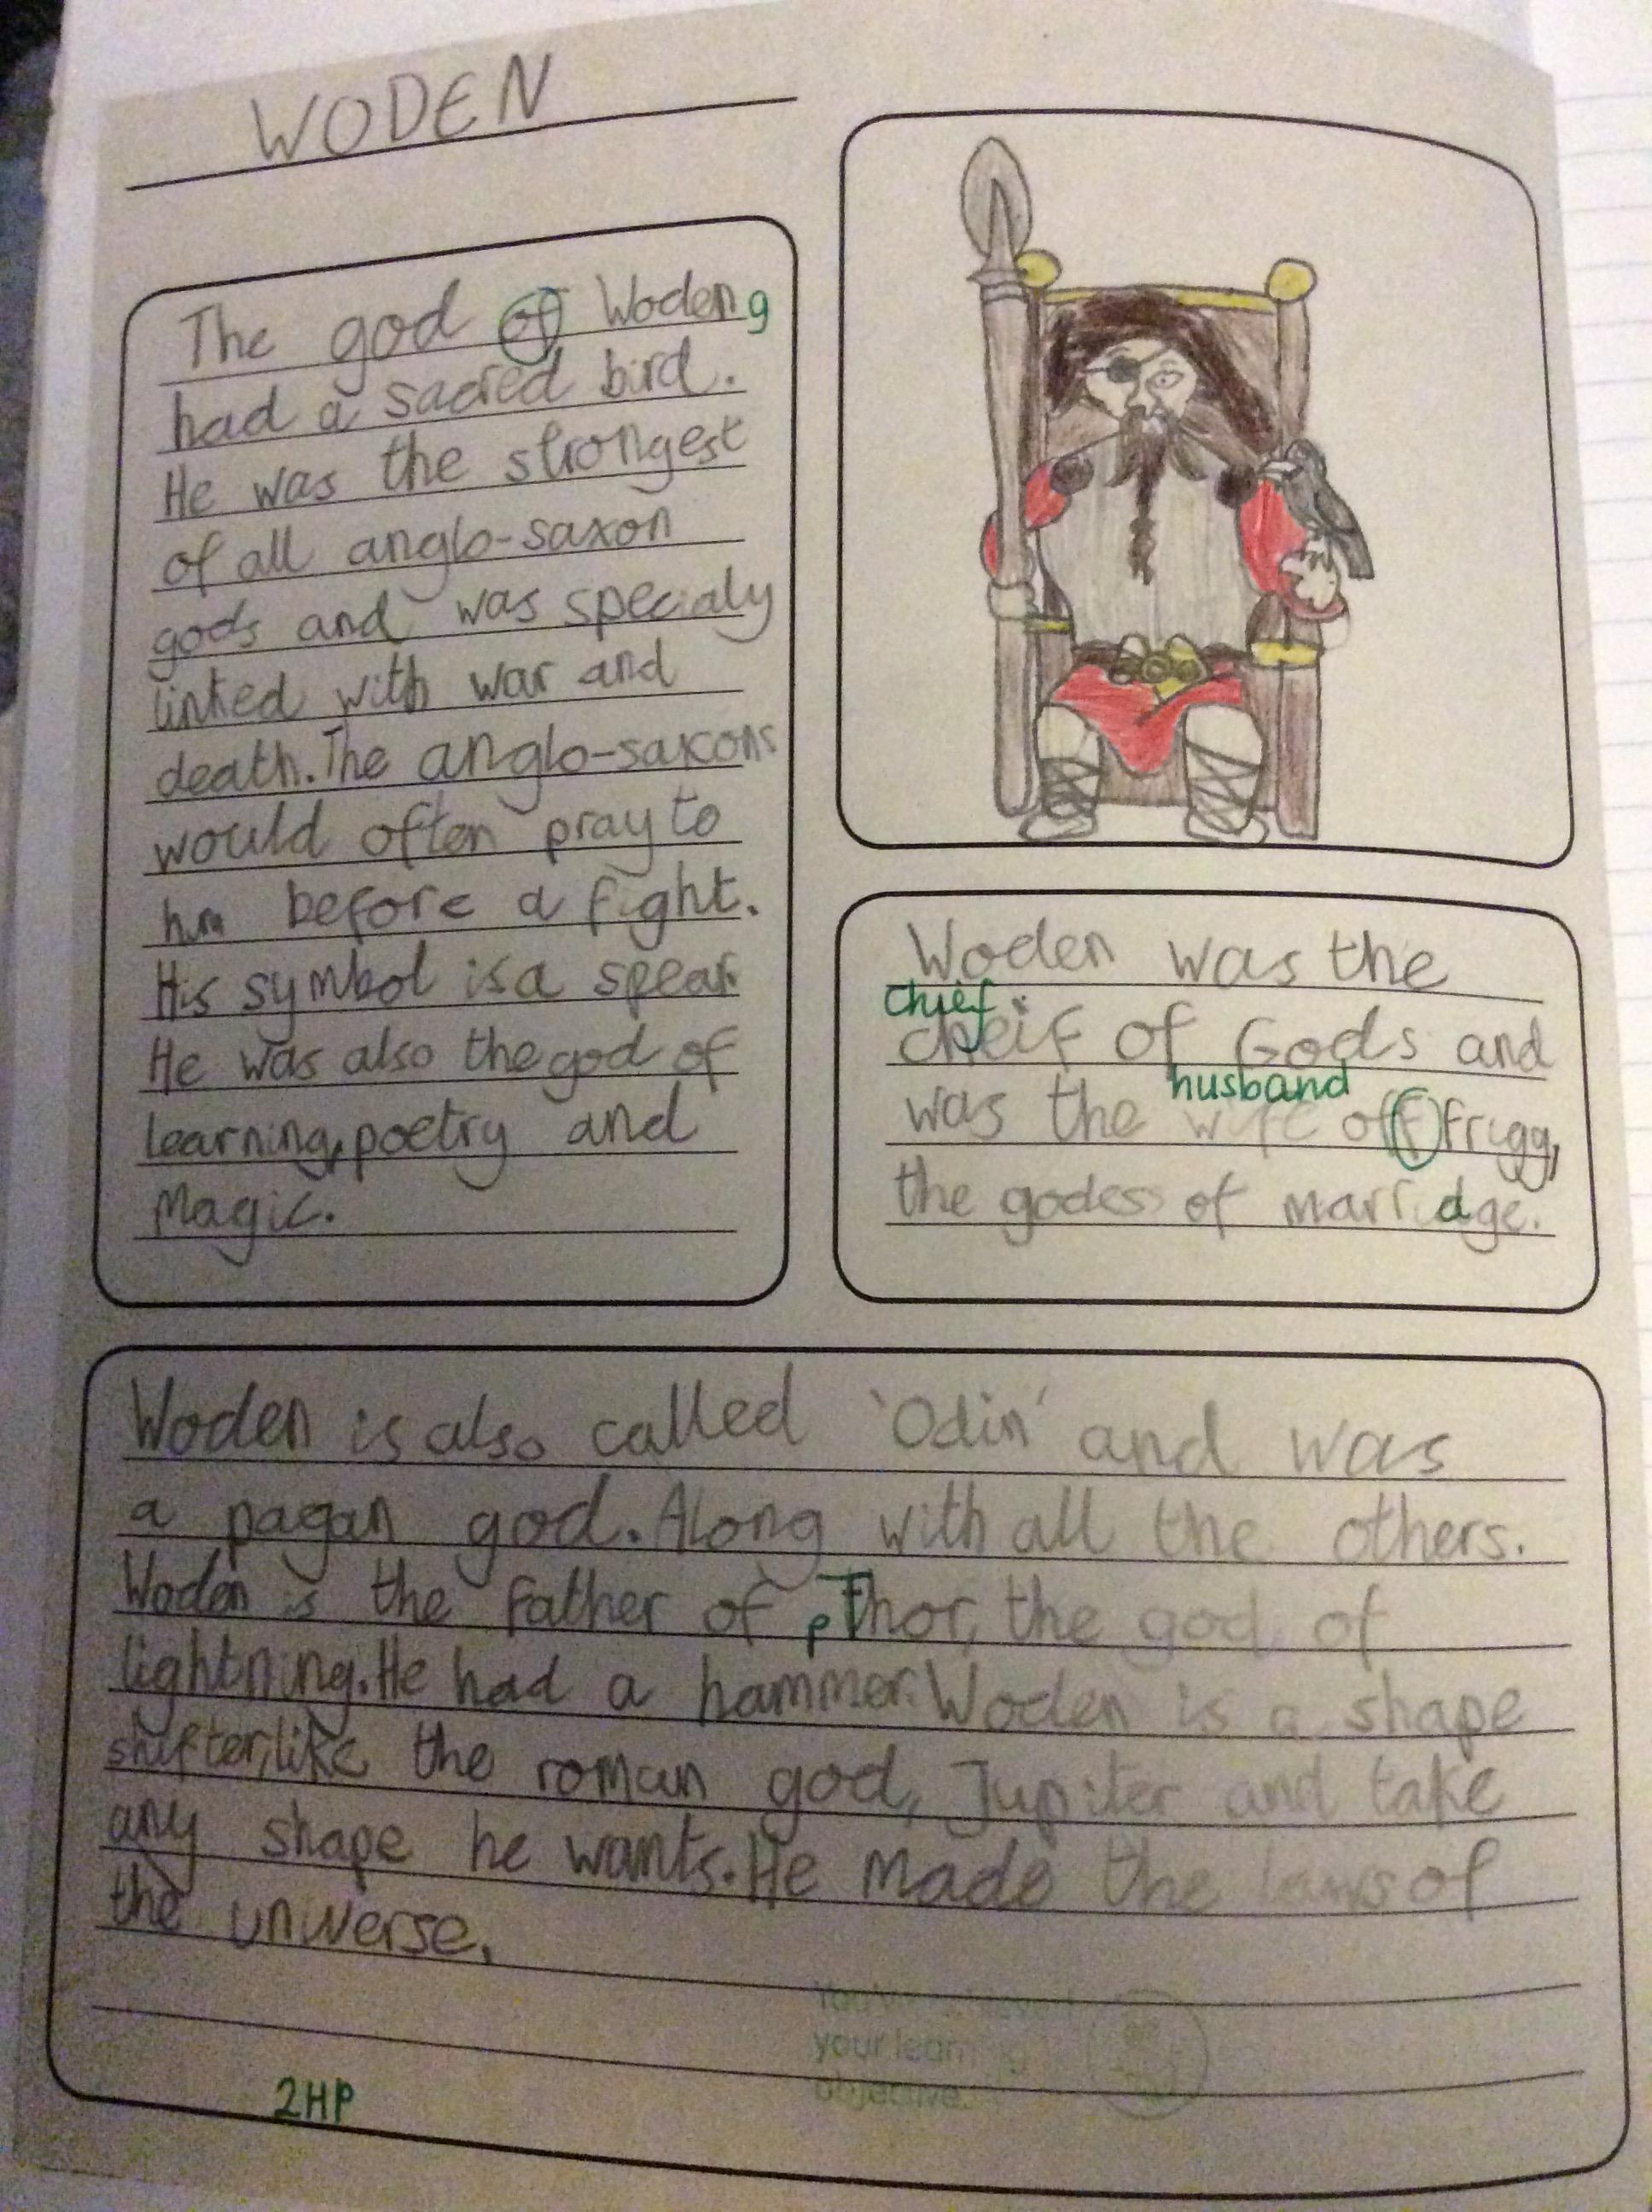 WODEN
The god of Woden g
had a sacred bird.
He was the strongest
of all anglo-saxon
gods and was specialy
linked with war and
death. The anglo-saxons
would often pray to
him before a fight.
His symbol is a spear.
He was also the god of
learning, poetry and
magic.
Woden was the
chief
cheif of Gods and
husband
was the wife off Frigg,
the godess of marridge.
Woden is also called 'Odin' and was
a pagan god. Along with all the others.
Woden is the father of p Thor, the god of
lightning. He had a hammer. Woden is a shape
shifter, like the roman god, Jupiter and take
any shape he wants. He made the laws of
the universe.
your learning
objective.
2HP